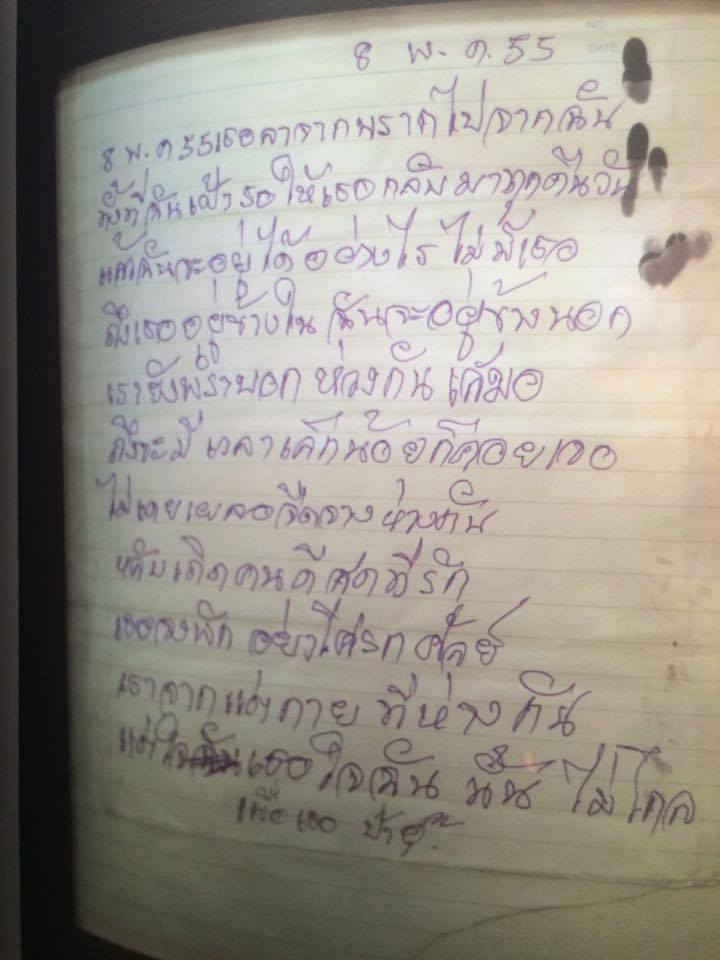 8 พ.ค.55
8 พ.ค 55 เธอลาจากพรากไปจากฉัน
ทั้งที่ฉันเฝ้ารอให้เธอกลับมาทุกคืนวัน
แล้วฉันจะอยู่ได้อย่างไร ไม่มีเธอ
ถึงเธออยู่ข้างใน ฉันจะอยู่ข้างนอก
เรายังพร่ำบอก ห่วงกัน
ถึงจะมี เวลาเล็กน้อยก็คอยเจอ
ไม่เคยเผลอจืดจางห่างกัน
หลับเถิดคนดีสุดที่รัก
เธอจงพัก อย่าโศรกศัลย์
เราจากแต่กาย ที่ห่างกัน
แต่ใจเธอ ใจฉัน นั้น ไม่ไกล
เพื่อเธอ ป้าอุ๊